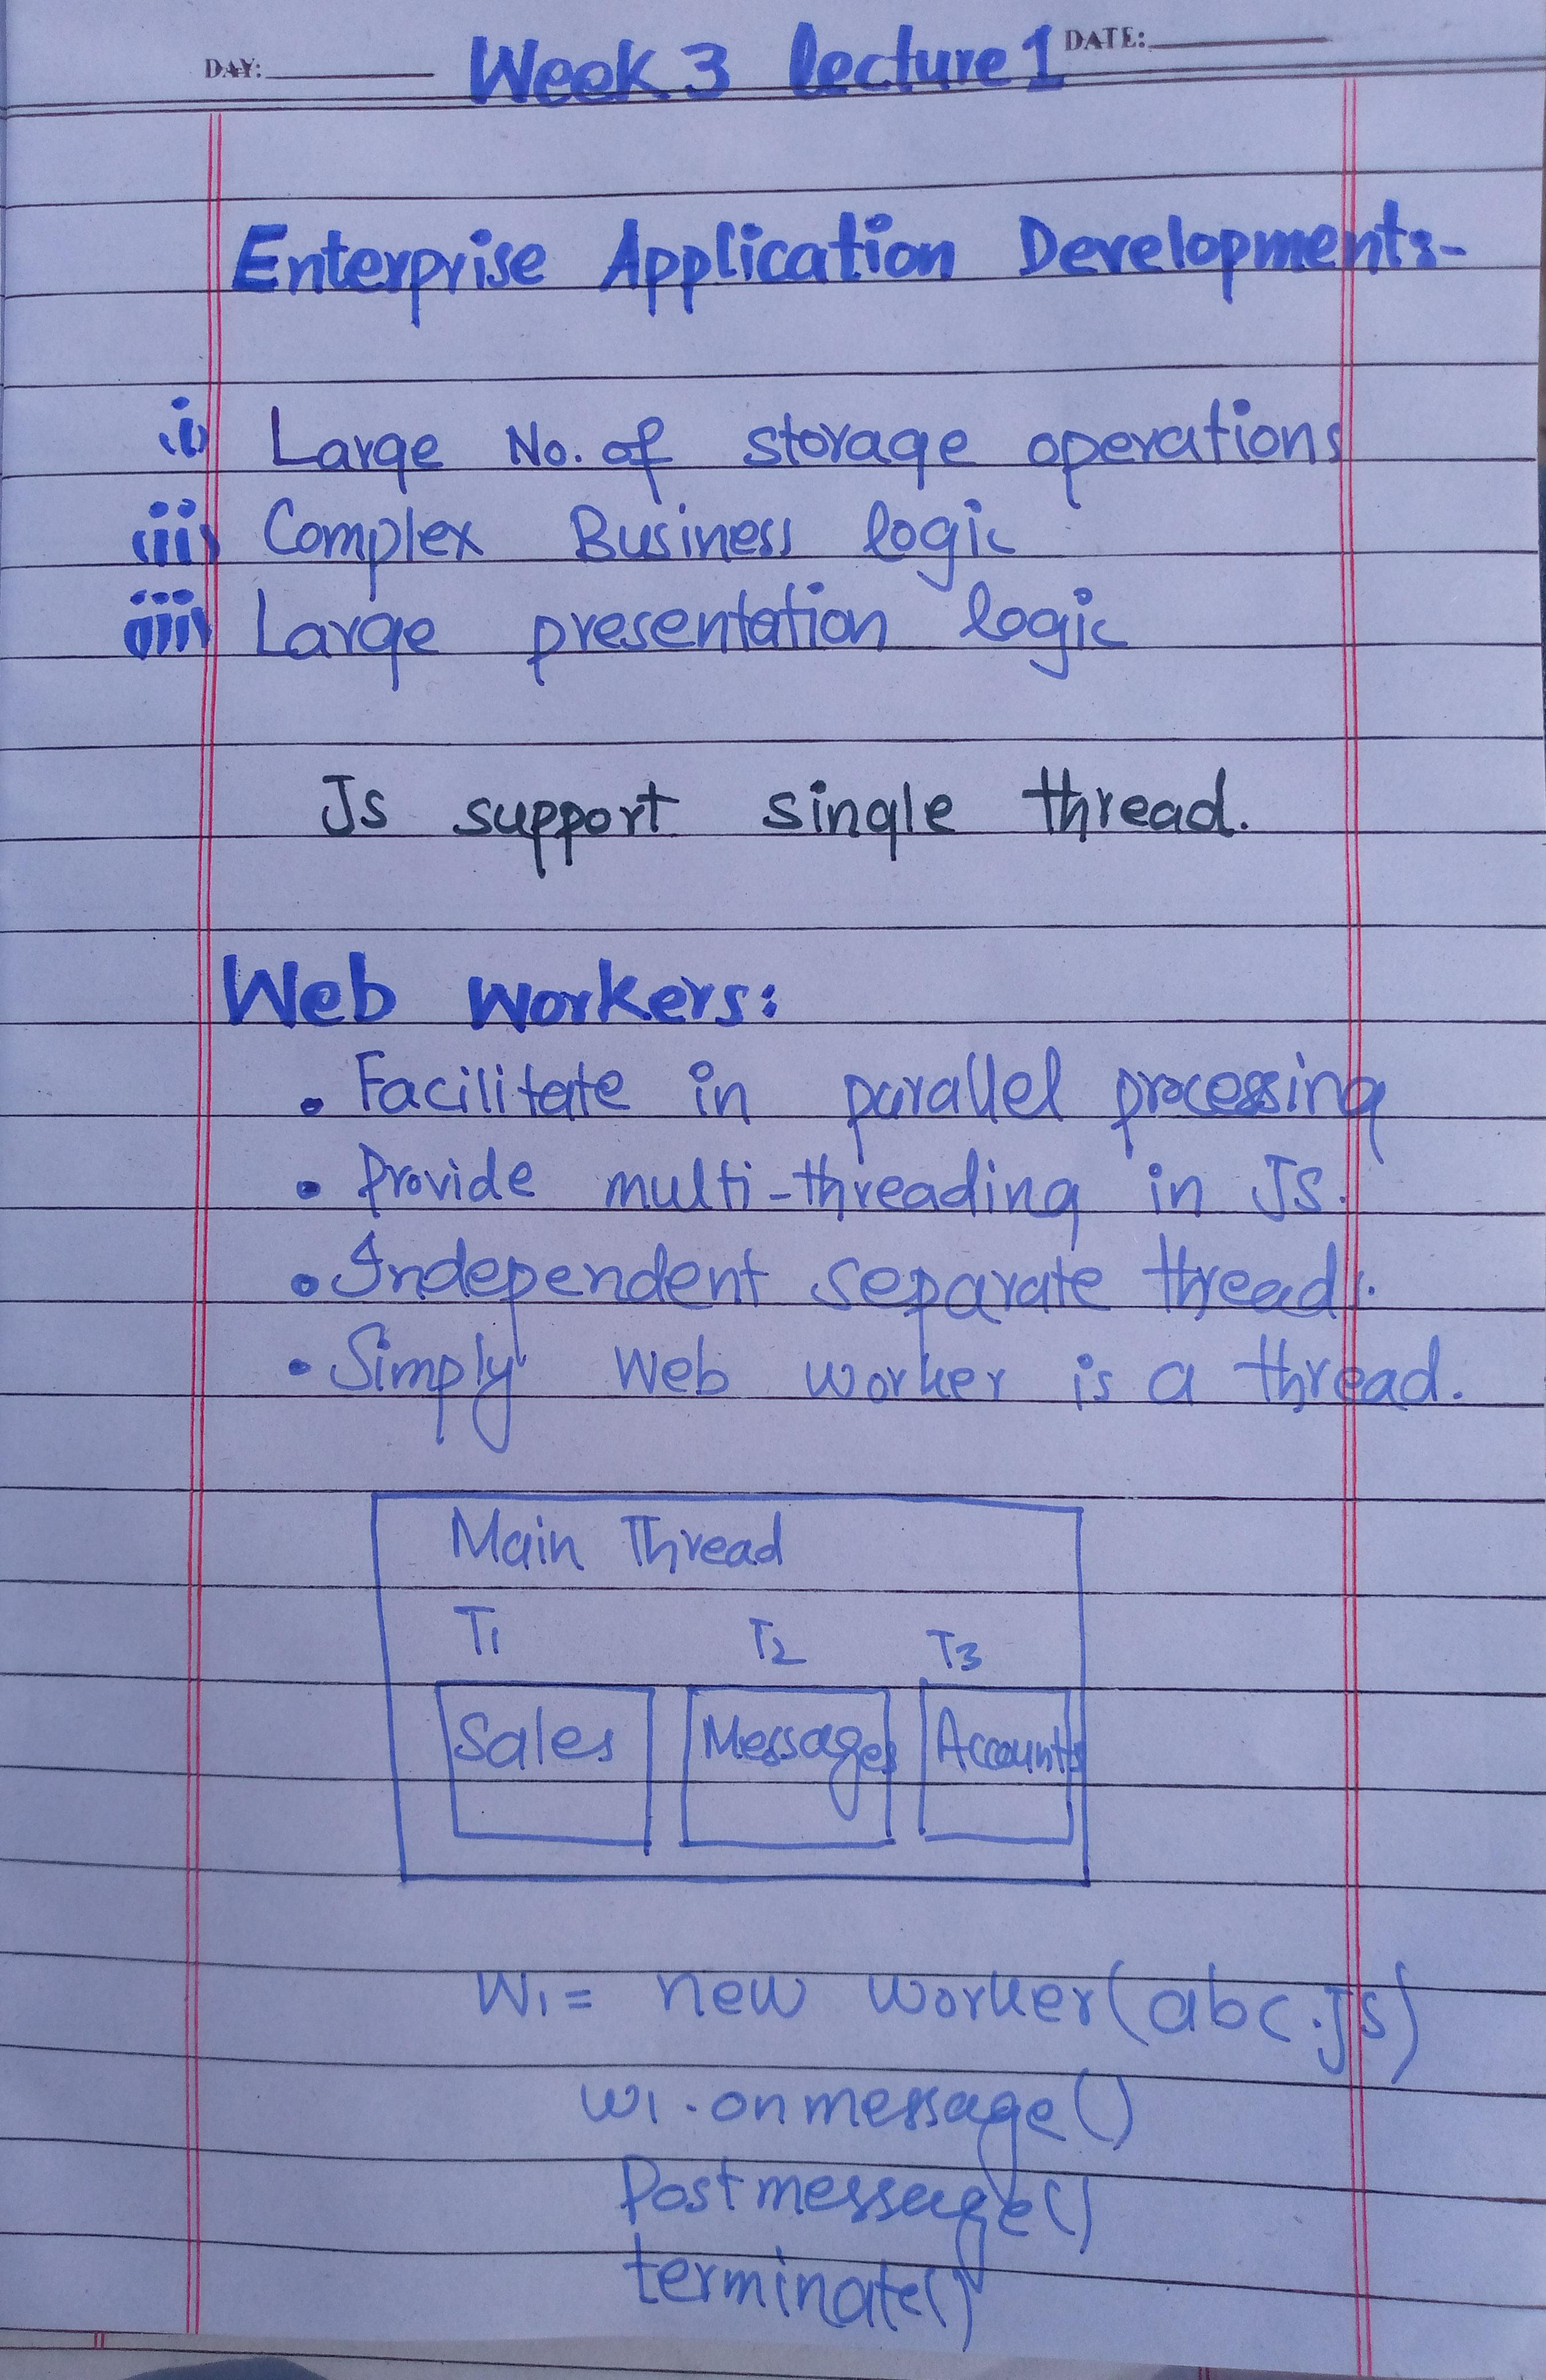 DAY: Week 3 lecture 1 DATE:
Enterprise Application Development:-
i) Large No. of storage operations
ii) Complex Business logic
iii) Large presentation logic
Js support single thread.
Web Workers:
• Facilitate in parallel processing
• Provide multi-threading in JS.
• Independent separate threads.
• Simply Web worker is a thread.
Main Thread
T1 T2 T3
Sales Messages Accounts
W1 = new worker(abc.js)
w1.onmessage()
Postmessage()
terminate()